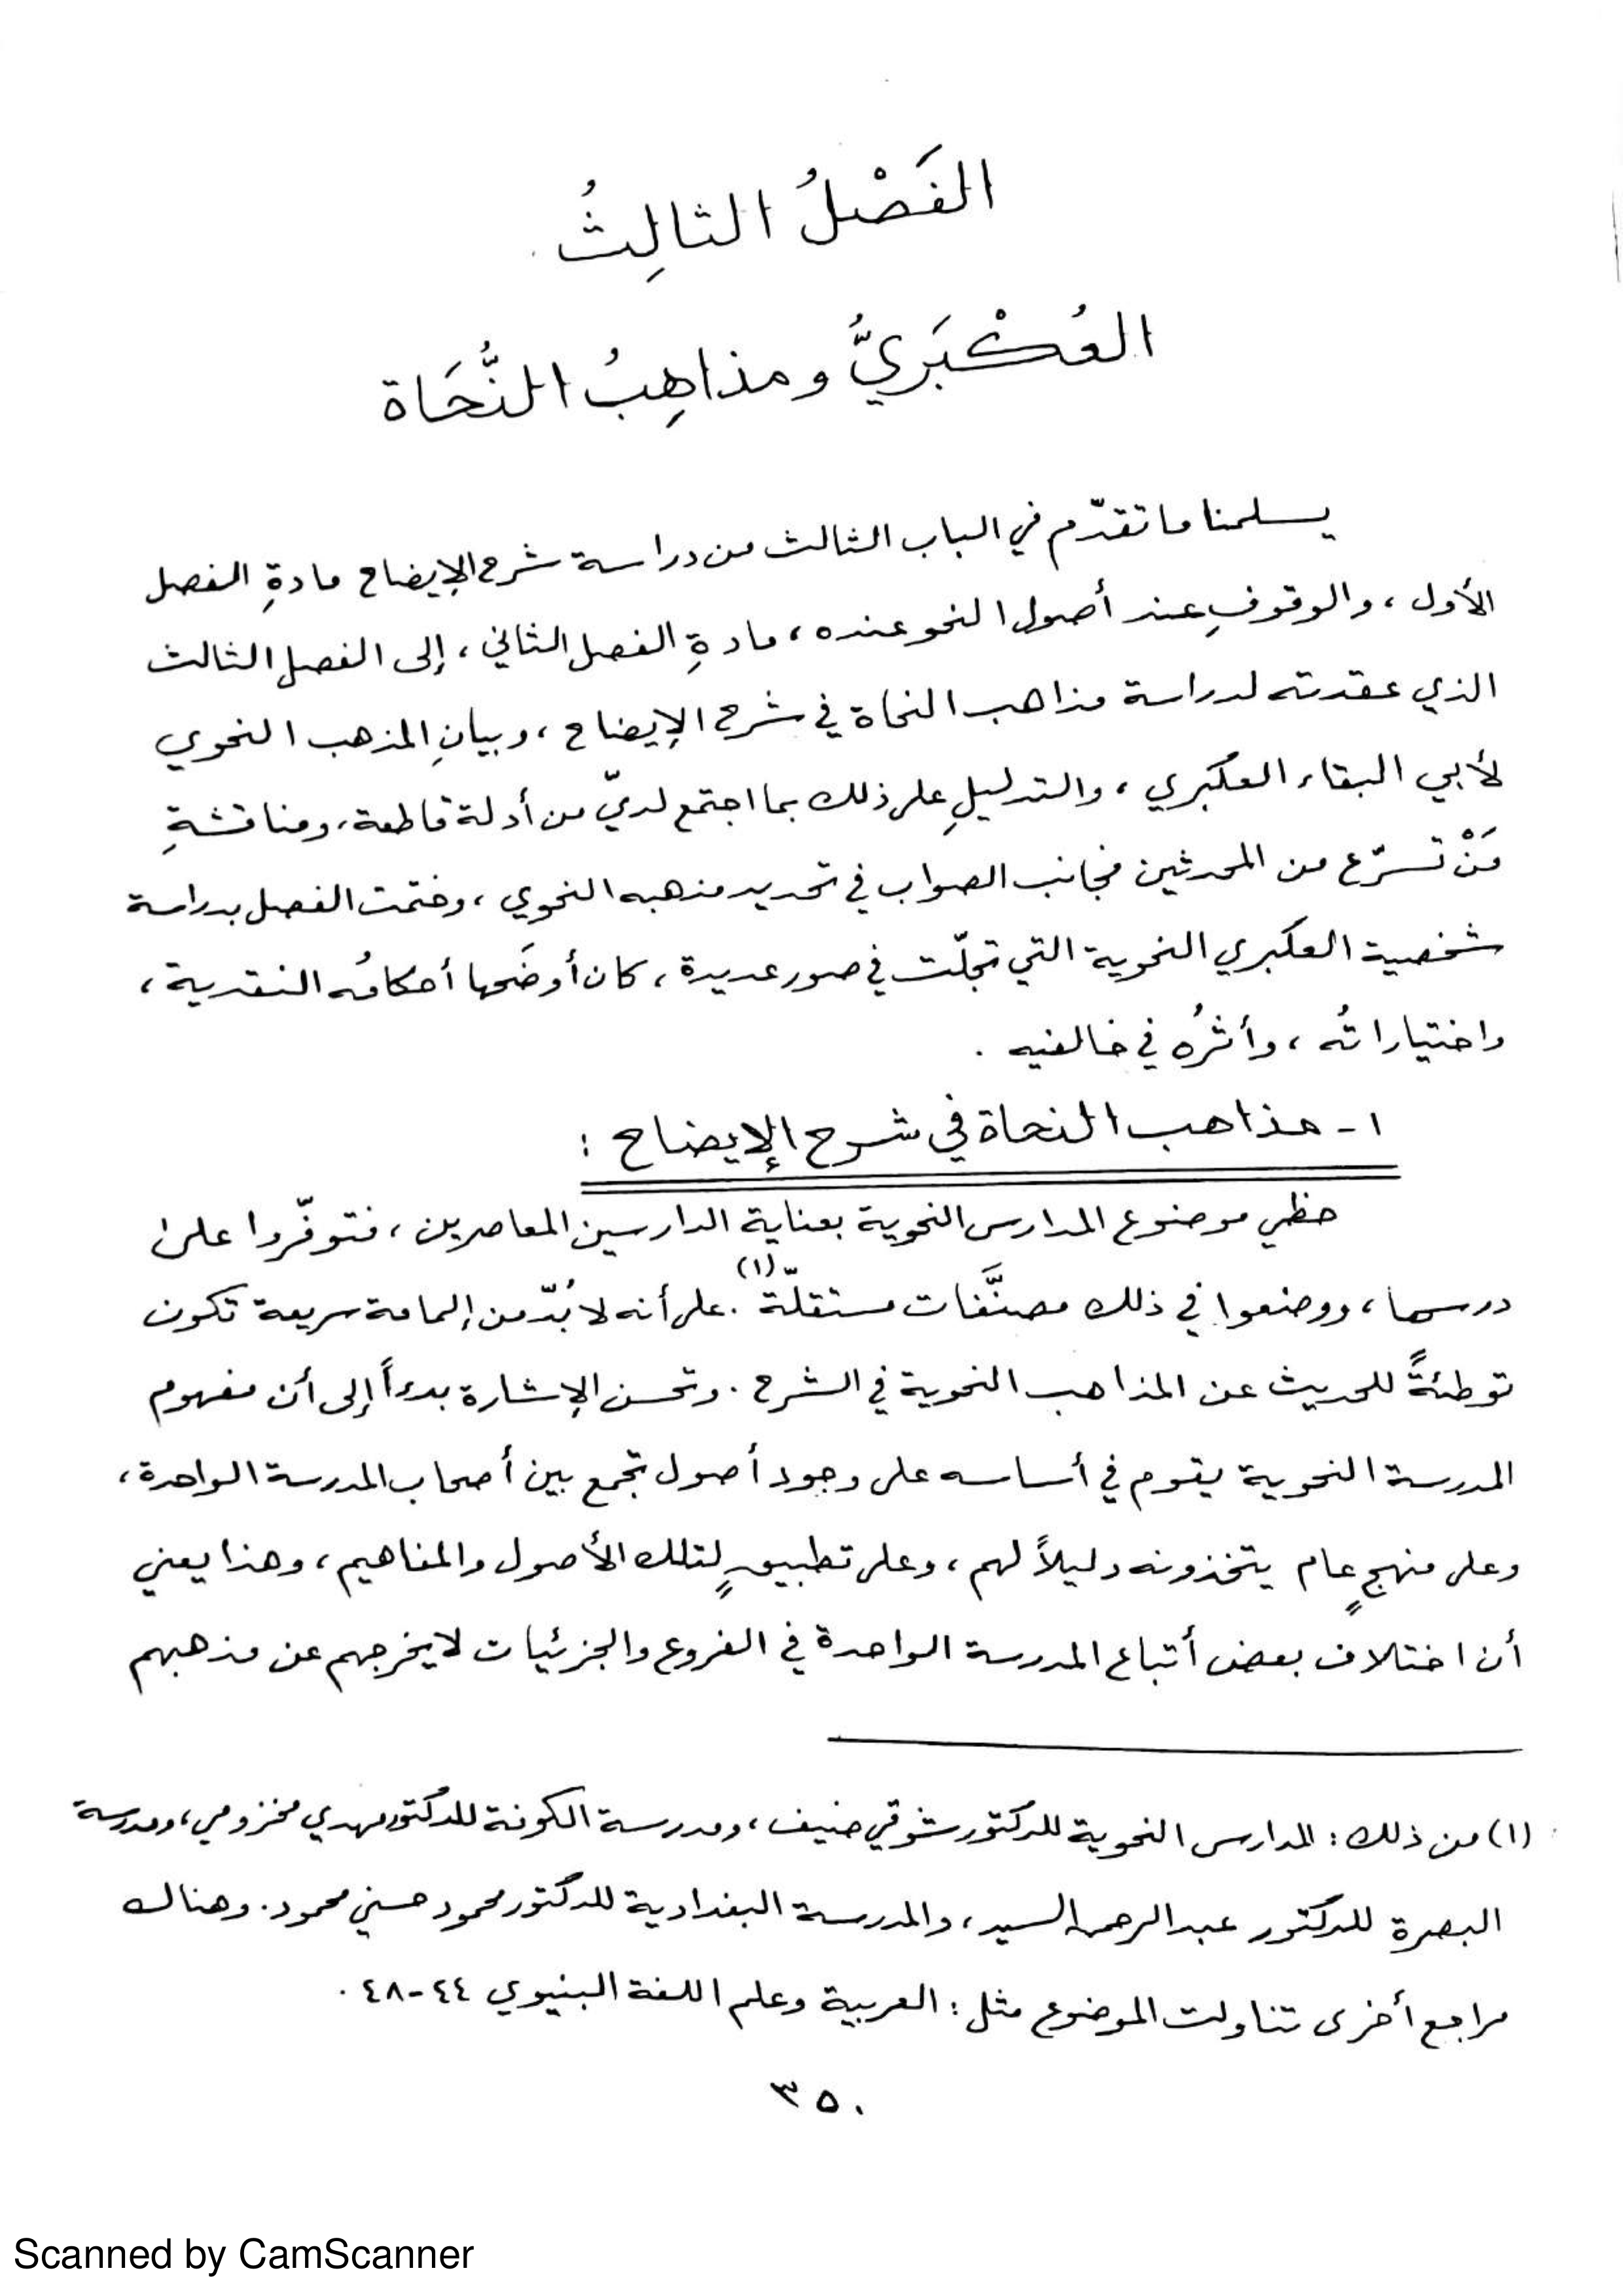 الفَصْلُ الثالِثُ
العُكْبَرِيُّ ومذاهِبُ النُّحَاة
يسلمنا ما تقدّم في الباب الثالث من دراسة شرح الإيضاح مادةِ الفصل
الأول ، والوقوفِ عند أصول النحو عنده ، مادةِ الفصل الثاني ، إلى الفصل الثالث
الذي عقدته لدراسة مذاهب النحاة في شرح الإيضاح ، وبيانِ المذهب النحوي
لأبي البقاء العكبري ، والتدليلِ على ذلك بما اجتمع لديّ من أدلة قاطعة ، ومناقشةِ
مَنْ تسرّع من المحدثين فجانب الصواب في تحديد مذهبه النحوي ، وختمت الفصل بدراسة
شخصية العكبري النحوية التي تجلّت في صور عديدة ، كان أوضَحها أحكامُه النقدية ،
واختياراتُه ، وأثرُه في خالفيه .
١- مذاهب النحاة في شرح الإيضاح :
حظي موضوع المدارس النحوية بعناية الدارسين المعاصرين ، فتوفّروا على
درسها ، ووضعوا في ذلك مصنَّفات مستقلّة (١) . على أنه لا بُدّ من إلمامة سريعة تكون
توطئةً للحديث عن المذاهب النحوية في الشرح . وتحسن الإشارة بدءاً إلى أن مفهوم
المدرسة النحوية يقوم في أساسه على وجود أصول تجمع بين أصحاب المدرسة الواحدة ،
وعلى منهجٍ عام يتخذونه دليلاً لهم ، وعلى تطبيقٍ لتلك الأصول والمفاهيم ، وهذا يعني
أن اختلاف بعض أتباع المدرسة الواحدة في الفروع والجزئيات لا يخرجهم عن مذهبهم
(١) من ذلك : المدارس النحوية للدكتور شوقي ضيف ، ومدرسة الكوفة للدكتور مهدي مخزومي ، ومدرسة
البصرة للدكتور عبد الرحمن السيد ، والمدرسة البغدادية للدكتور محمود حسني محمود . وهناك
مراجع أخرى تناولت الموضوع مثل : العربية وعلم اللغة البنيوي ٤٤-٤٨ .
٣٥٠
Scanned by CamScanner